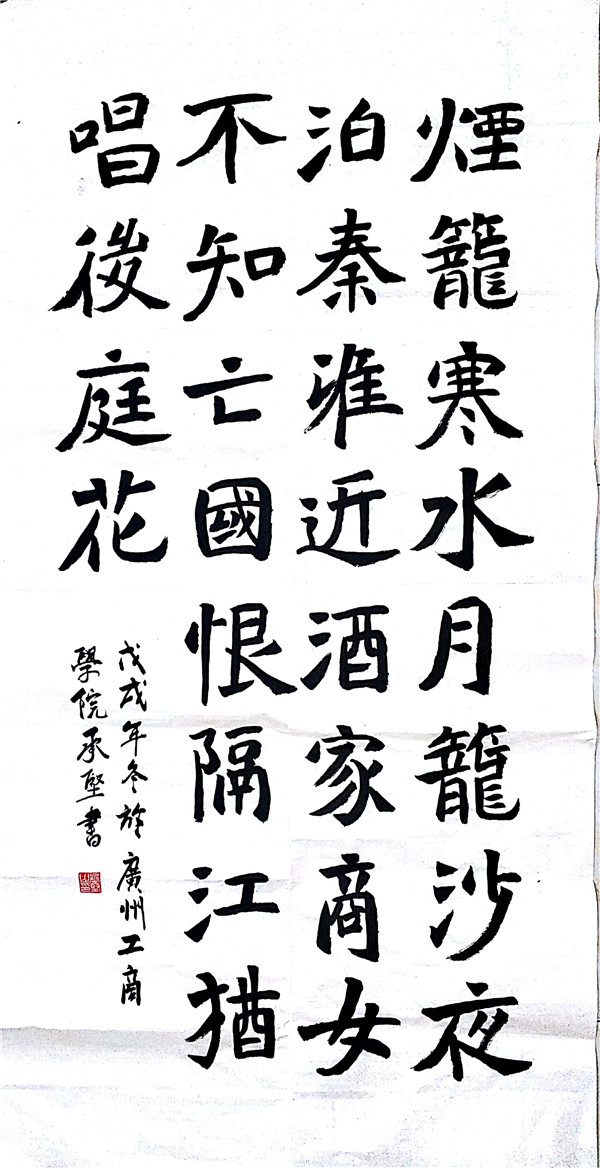 煙籠寒水月籠沙夜
泊秦淮近酒家商女
不知亡國恨隔江猶
唱後庭花
戊戌年冬於廣州工商
學院承堅書